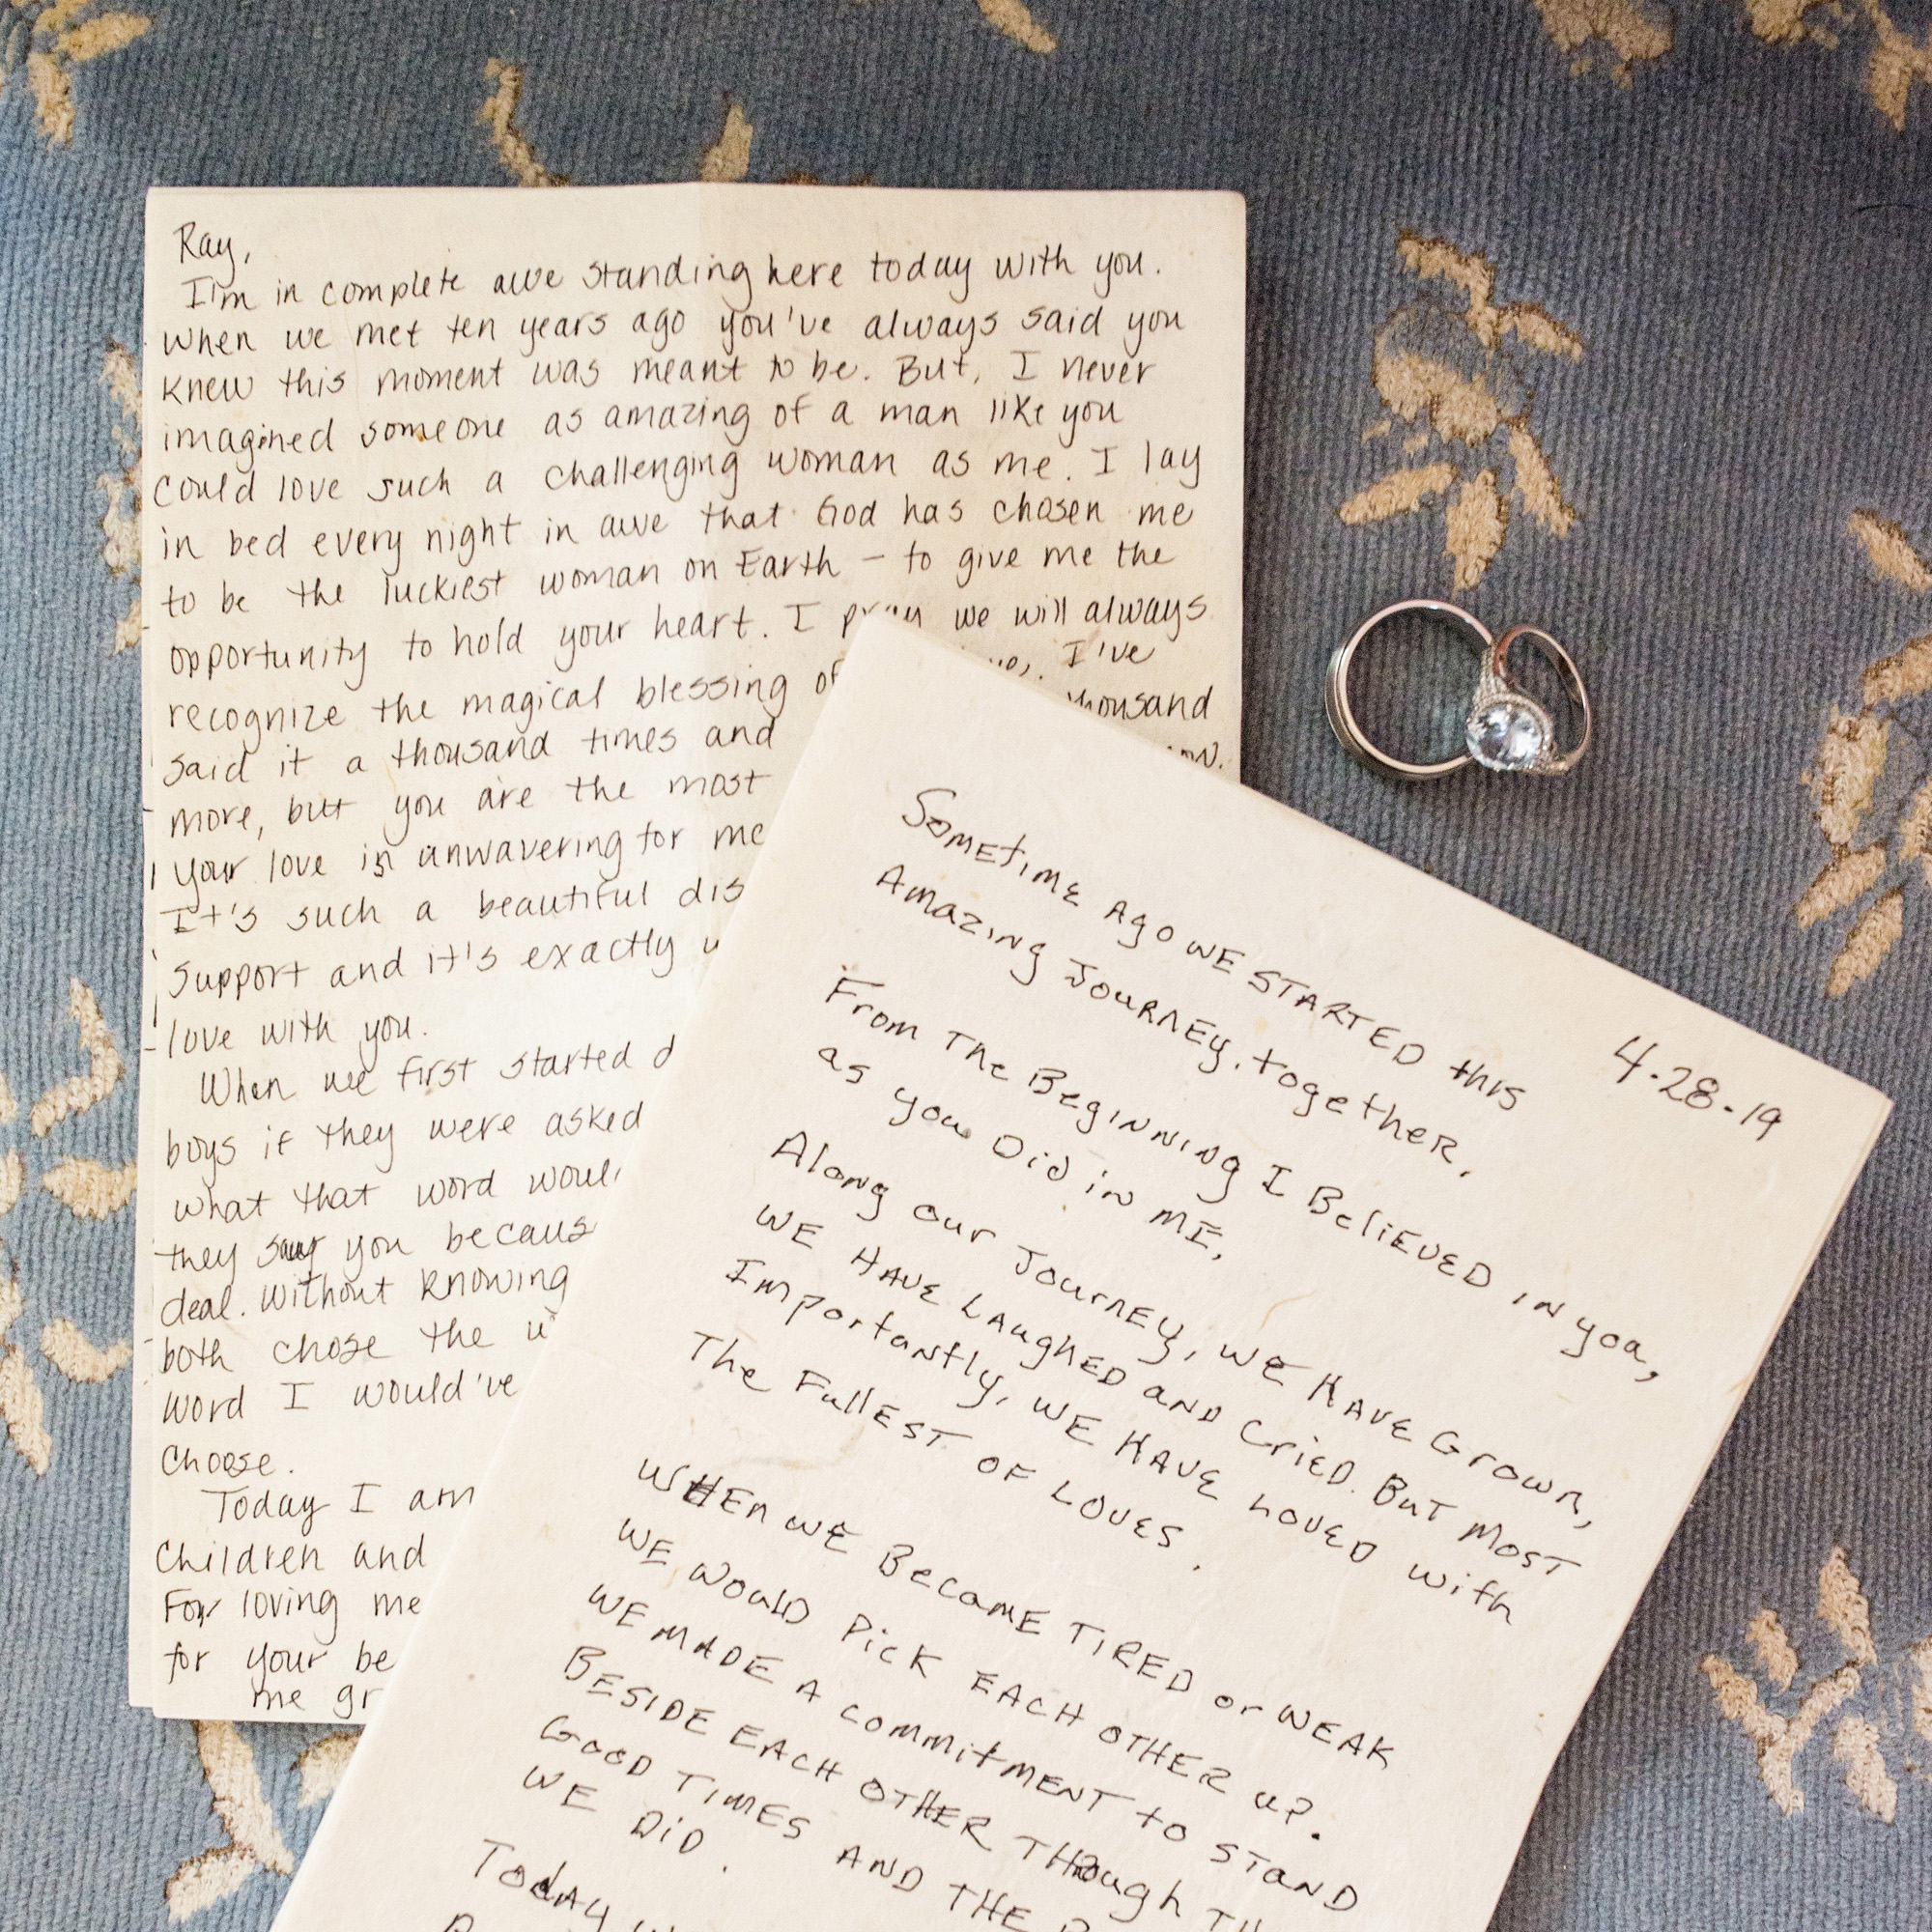 Ray,
I'm in complete awe standing here today with you.
When we met ten years ago you've always said you
knew this moment was meant to be. But, I never
imagined someone as amazing of a man like you
could love such a challenging woman as me. I lay
in bed every night in awe that God has chosen me
to be the luckiest woman on Earth – to give me the
opportunity to hold your heart. I pray we will always
recognize the magical blessing of I've
said it a thousand times and thousand
more, but you are the most
your love is unwavering for me
It's such a beautiful
support and it's exactly
love with you.
When we first started
boys if they were asked
what that word
they say you
deal. Without knowing
both chose the
word I would've
choose.
Today I am
children and
For loving me
for your
me
4-28-19
Sometime Ago WE STARTED this
Amazing Journey, together.
From The Beginning I BeliEVED in you,
as you Did in ME,
Along our JournEy, WE HAVE Grown,
WE HAVE LAughED anD CriED. BuT MosT
Importantly, WE HAVE LOVED with
The FullEST OF LOVES.
WHEn WE BecamE TIRED or WEAK
WE WOulD PicK EACH OTHER up.
WE MADE A commitMENT to STanD
BESIDE EACH OTHER THRough
GooD TIMES AND THE
WE DiD.
TodAy